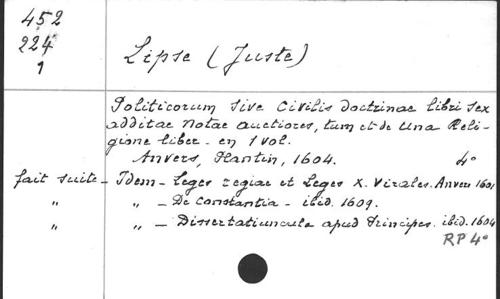 452
224
1
Lipse (Juste)
Politicorum sive Civilis doctrinae libri sex
additae notae auctiores, tum et de Una Reli-
gione liber - en 1 vol.
Anvers, Plantin, 1604. 4°
fait suite - Idem - Leges regiae et Leges X. Virales. Anvers 1601
" " - De Constantia - ibid. 1609.
" " - Dissertatiuncula apud Principes. ibid. 1604
RP 4°